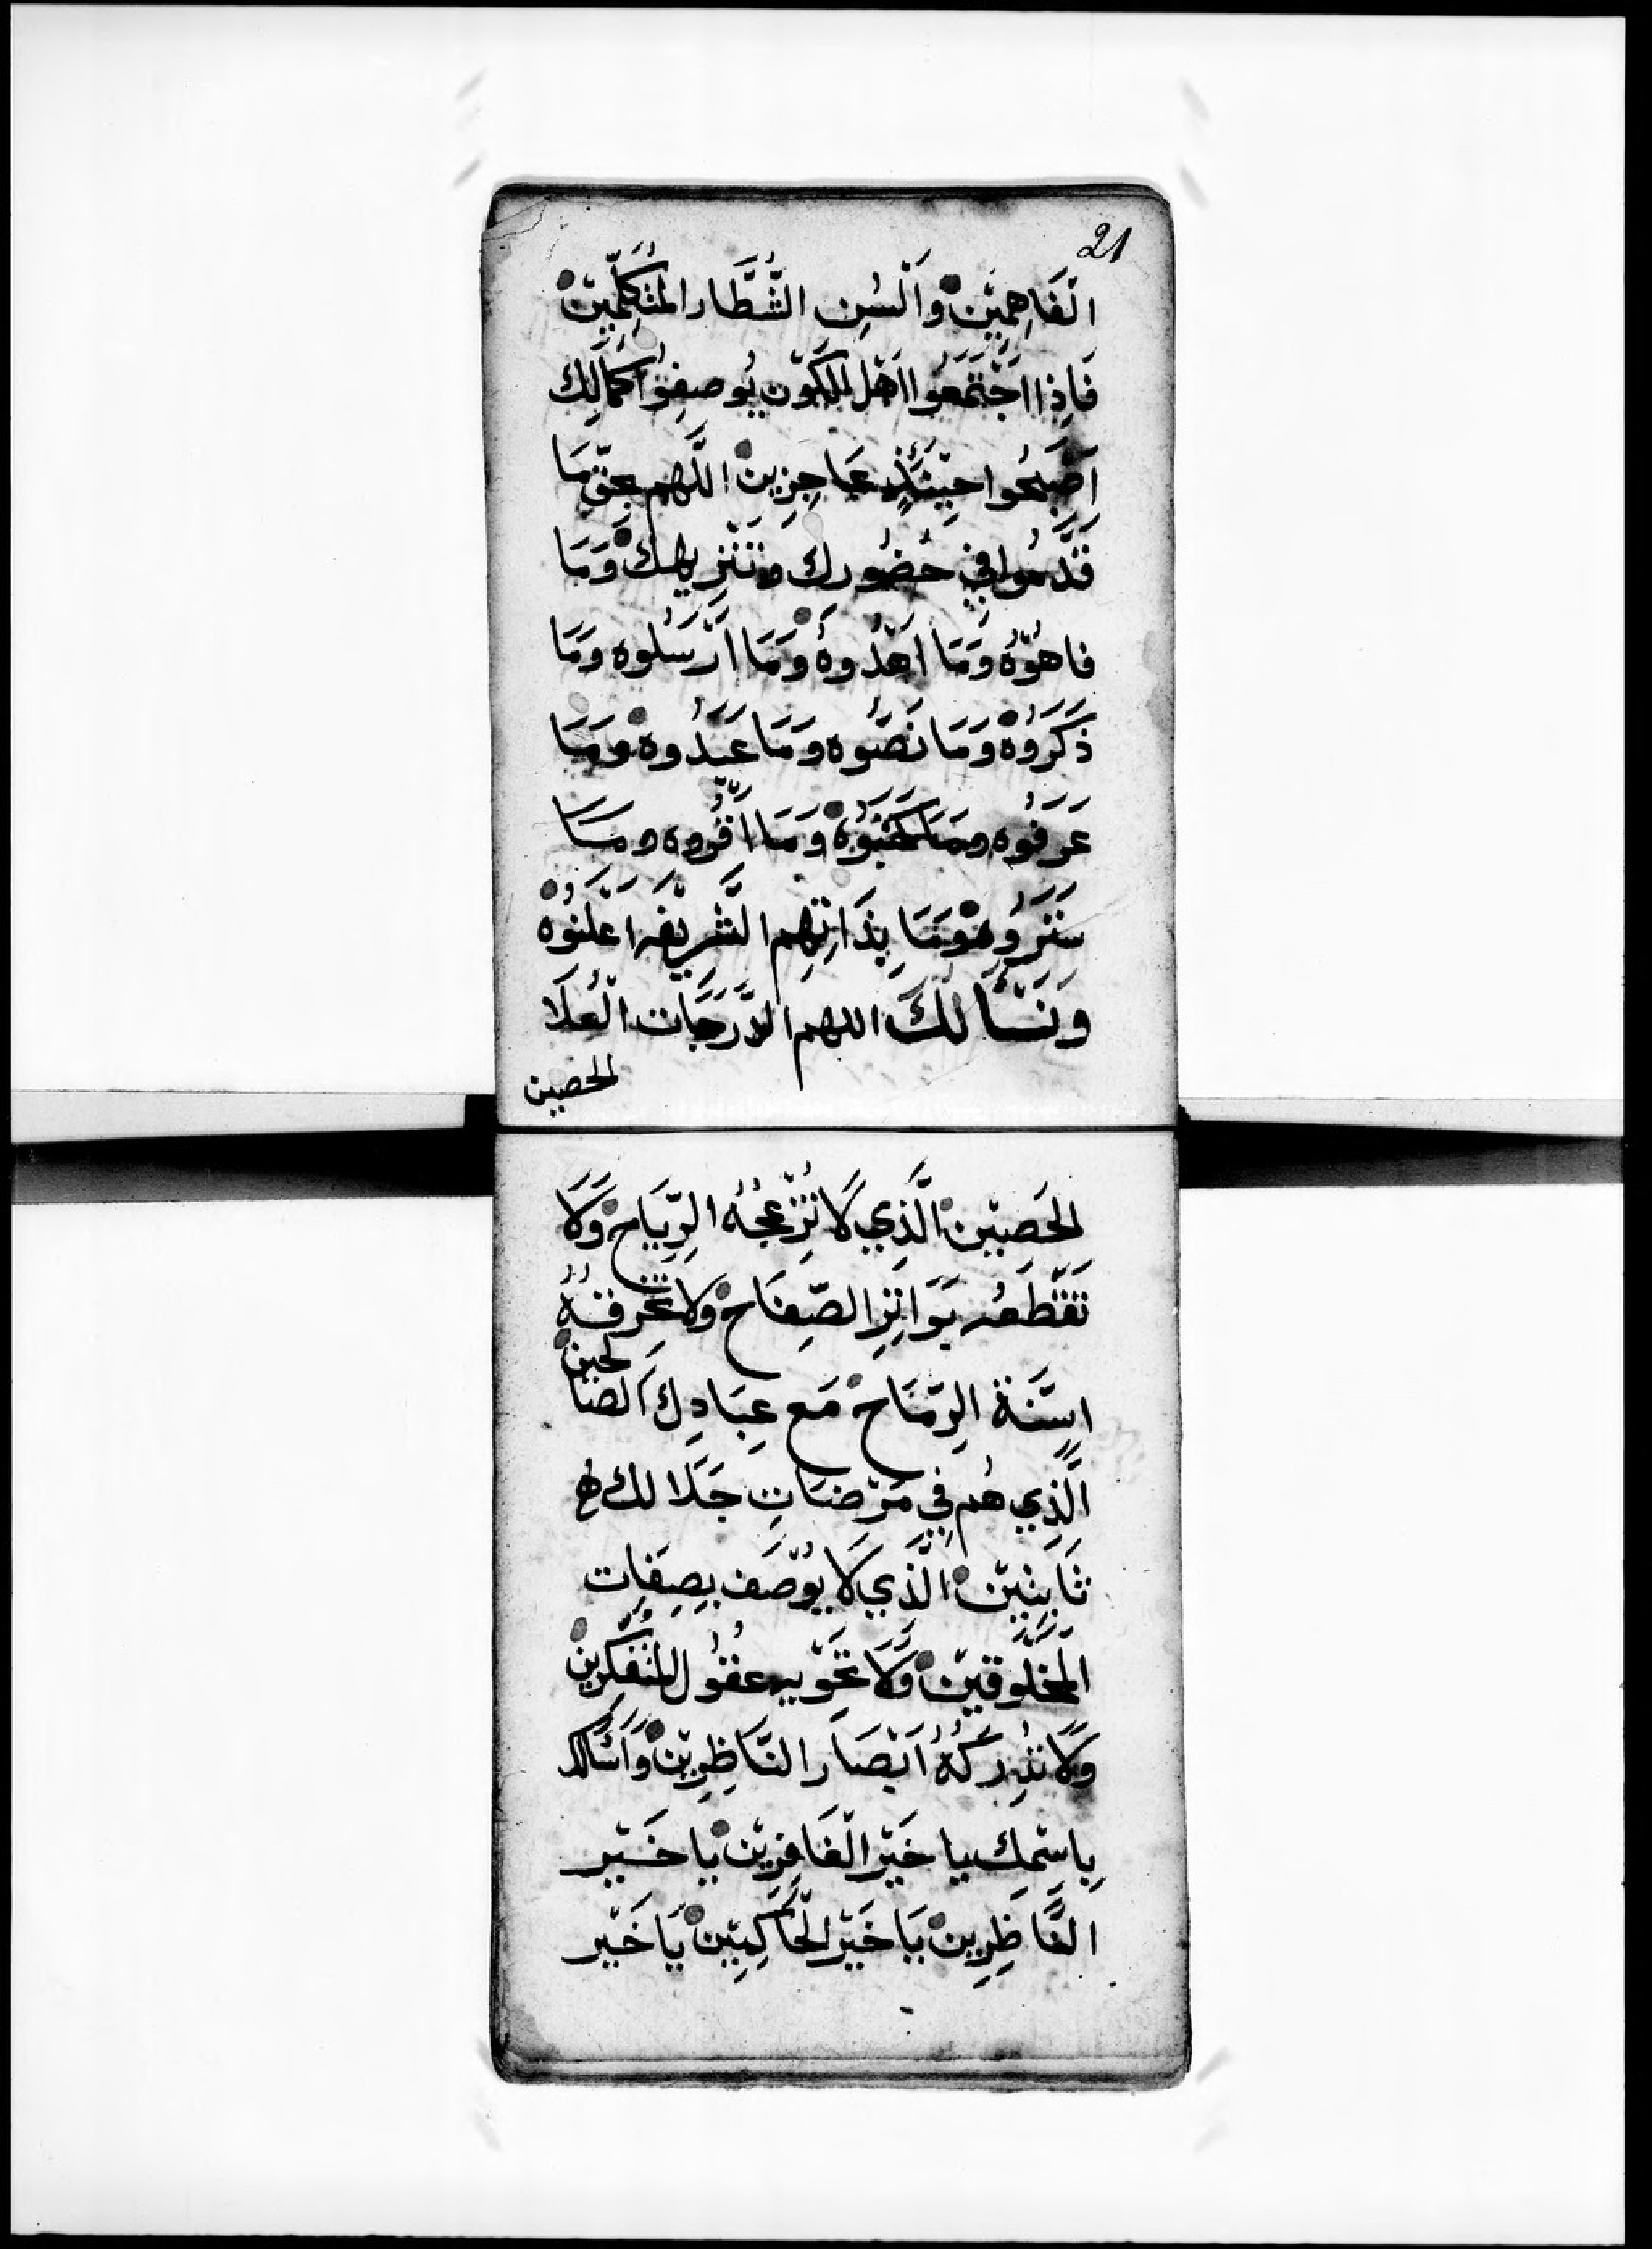 21
الْفَاهِمِيْن وَاَلْسُنِ الشُّطَّار المُتَكَلِّمِيْن
فَاِذا اجْتَمَعُوا اهْل الكَوْن يُوصِفِوُا كمَالِك
اَصْبَحُوا حِيْنَئِذٍ عَاجِزِينْ اللَّهم بحَقِّ مَا
قَدَّمُوا فِي حُضُورك من تَنْزِيهك وَمَا
فاهُوْهُ وَمَا اهْدُوهُ وَمَا ارْسَلُوه وَمَا
ذكَرُوهْ وَمَا نَصّوه وَمَا عَبَدُوه ومَا
عَرَفُوه ومَا كَتَبُوْهُ وَمَا اقُّروه ومَا
سَتَرُوهْ وَمَا بِذَاتِهِم الشَّرِيْفه اعْلَنُوْهْ
وَنَسْأَلُكَ اللهم الدَّرَجَات الْعُلَا
الحصين
الحَصِيْن الَّذِي لَا تُزْعِجُهُ الرِّيَاح وَلَا
تَقْطَعُه بَوَاتِرِ الصِّفَاح ولا تخْرقهُ
اسِنَّة الرِّمَاح مَع عِبَادِكَ الصَّا
لحين
الَّذِي هُم فِي مَرْضَاتِ جَلَا لك هـ
ثَابِتِيْن الَّذِي لَا يُوْصَف بِصِفَات
المَخْلُوقِيْن وَلَا تَحْوِيه عقُول المُتَفَكِّرِين
وَلَا تُدْرِكَهُ ابْصَار النَّاظِرِيْن وَأَسْأَلك
بِاسْمك يا خَيْر الْغَافِرِيْن يا خَيْر
النَّاظِرِين يَا خَيْر الحَاكِمِيْن يَا خَيْر